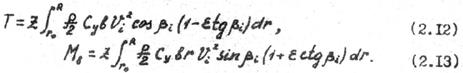 T = z ∫_{r₀}^{R} ρ/2 C_y b V_i² cos β_i (1 - ε tg β_i) dr, (2.12)
M_в = z ∫_{r₀}^{R} ρ/2 C_y b r V_i² sin β_i (1 + ε ctg β_i) dr. (2.13)